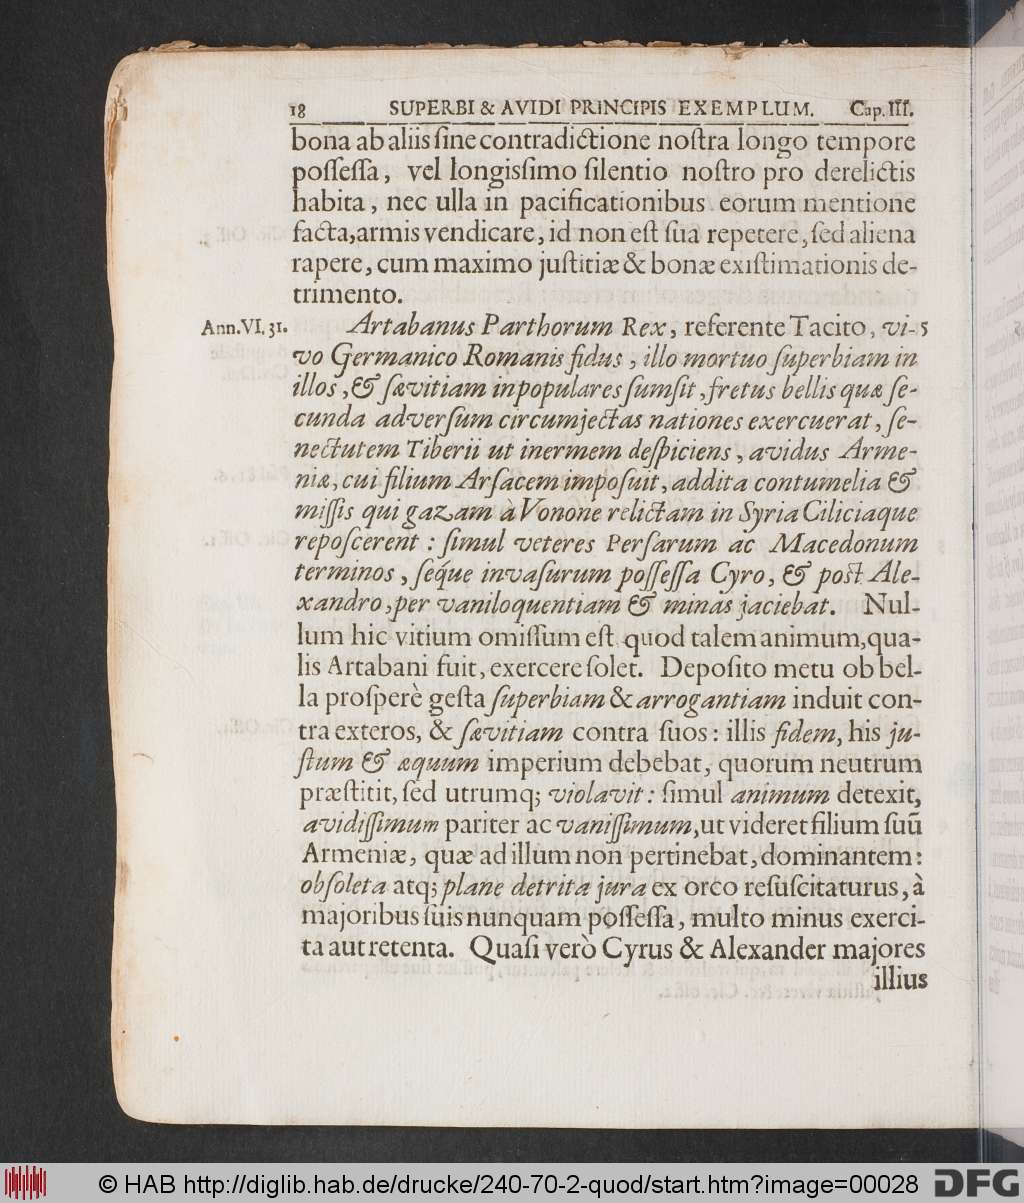 18 SUPERBI & AVIDI PRINCIPIS EXEMPLUM. Cap. III.
bona ab aliis ſine contradictione noſtra longo tempore
poſſeſſa, vel longisſimo ſilentio noſtro pro derelictis
habita, nec ulla in pacificationibus eorum mentione
facta, armis vendicare, id non eſt ſua repetere, ſed aliena
rapere, cum maximo juſtitiæ & bonæ exiſtimationis de-
trimento.
Ann. VI. 31. Artabanus Parthorum Rex, referente Tacito, vi- 5
vo Germanico Romanis fidus, illo mortuo ſuperbiam in
illos, & ſævitiam in populares ſumſit, fretus bellis quæ ſe-
cunda adverſum circumjectas nationes exercuerat, ſe-
nectutem Tiberii ut inermem deſpiciens, avidus Arme-
niæ, cui filium Arſacem impoſuit, addita contumelia &
miſſis qui gazam à Vonone relictam in Syria Ciliciaque
repoſcerent: ſimul veteres Perſarum ac Macedonum
terminos, ſeq́ue invaſurum poſſeſſa Cyro, & poſt Ale-
xandro, per vaniloquentiam & minas jaciebat. Nul-
lum hic vitium omiſſum eſt quod talem animum, qua-
lis Artabani fuit, exercere ſolet. Depoſito metu ob bel-
la proſperè geſta ſuperbiam & arrogantiam induit con-
tra exteros, & ſævitiam contra ſuos: illis fidem, his ju-
ſtum & æquum imperium debebat, quorum neutrum
præſtitit, ſed utrumq; violavit: ſimul animum detexit,
avidiſſimum pariter ac vaniſſimum, ut videret filium ſuũ
Armeniæ, quæ ad illum non pertinebat, dominantem:
obſoleta atq; plane detrita jura ex orco reſuſcitaturus, à
majoribus ſuis nunquam poſſeſſa, multo minus exerci-
ta aut retenta. Quaſi verò Cyrus & Alexander majores
illius
© HAB http://diglib.hab.de/drucke/240-70-2-quod/start.htm?image=00028
DFG